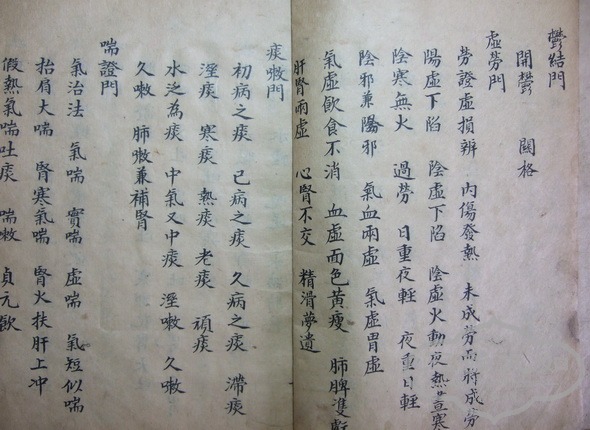 鬱結門
開鬱 関格
虛勞門
勞證虛損辨 內傷發熱 未成勞而將成勞
陽虛下陷 陰虛下陷 陰虛火動夜熱
陰寒無火 過勞 日重夜輕 夜重日輕
陰邪兼陽邪 氣血兩虛 氣虛胃虛
氣虛飲食不消 血虛而色黃瘦 肺脾雙
肝腎兩虛 心腎不交 精滑夢遺
痰嗽門
初病之痰 已病之痰 久病之痰 滯痰
溼痰 寒痰 熱痰 老痰 頑痰
水泛為痰 中氣又中痰 溼嗽 久嗽
久嗽 肺嗽兼補腎
喘證門
氣治法 氣喘 實喘 虛喘 氣短似喘
抬肩大喘 腎寒氣喘 腎火扶肝上冲
假熱氣喘吐痰 喘嗽 貞元飲